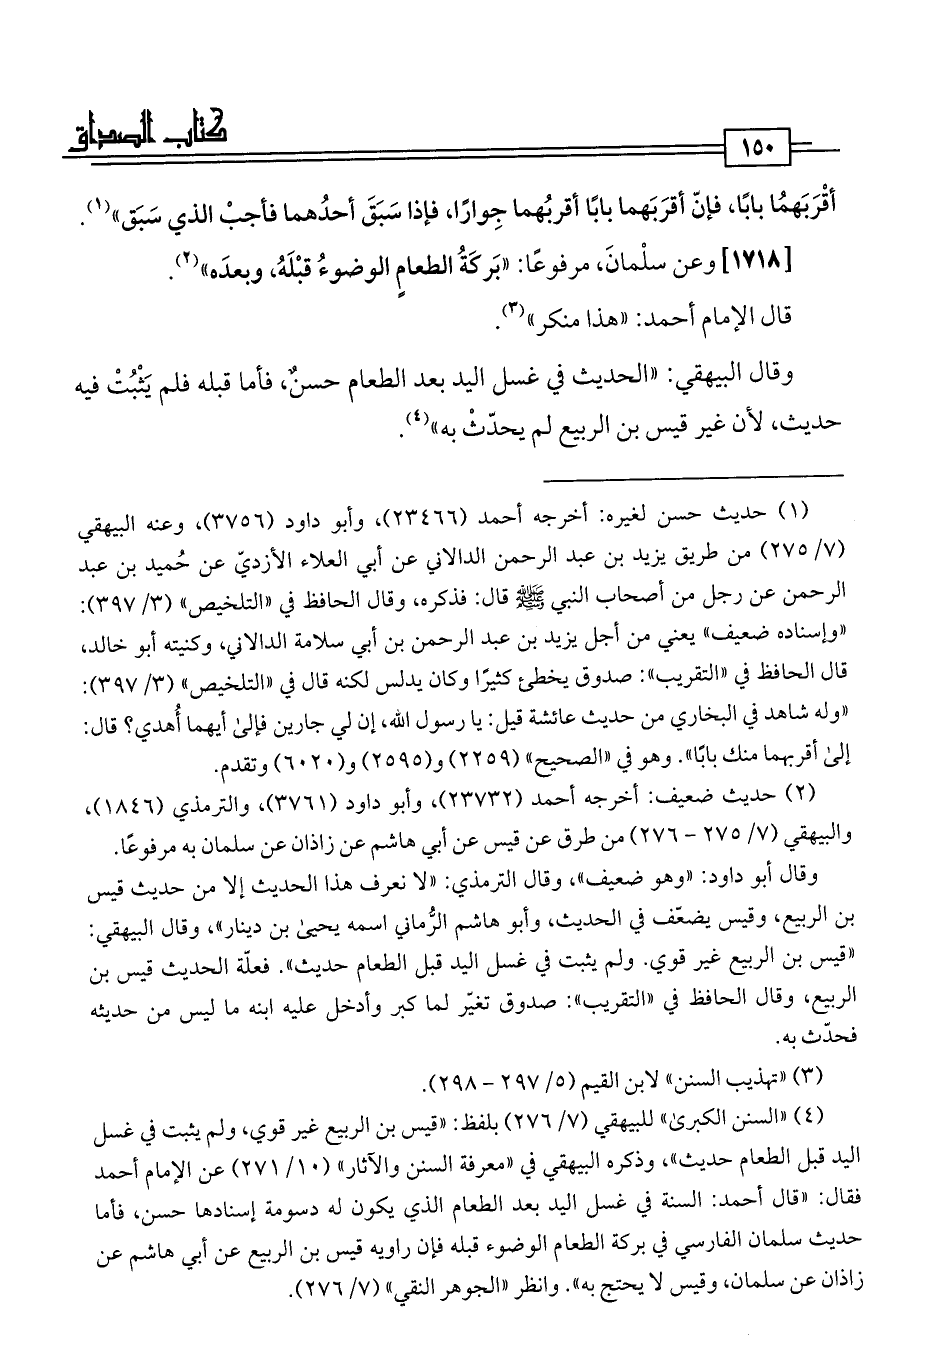 كتاب الصداق
١٥٠
أقْرَبَهمُا بابًا، فإنّ أقرَبَهما بابًا أقربُهما جِوارًا، فإذا سَبَقَ أحدُهما فأجبْ الذي سَبَق»(١).
[١٧١٨] وعن سلْمانَ، مرفوعًا: «بَركَةُ الطعامِ الوضوءُ قبْلَهُ، وبعدَه»(٢).
قال الإمام أحمد: «هذا منكر»(٣).
وقال البيهقي: «الحديث في غسل اليد بعد الطعام حسنٌ، فأما قبله فلم يَثْبُتْ فيه
حديث، لأن غير قيس بن الربيع لم يحدّثْ به»(٤).
(١) حديث حسن لغيره: أخرجه أحمد (٢٣٤٦٦)، وأبو داود (٣٧٥٦)، وعنه البيهقي
(٧/ ٢٧٥) من طريق يزيد بن عبد الرحمن الدالاني عن أبي العلاء الأزديّ عن حُميد بن عبد
الرحمن عن رجل من أصحاب النبي ﷺ قال: فذكره، وقال الحافظ في «التلخيص» (٣/ ٣٩٧):
«وإسناده ضعيف» يعني من أجل يزيد بن عبد الرحمن بن أبي سلامة الدالاني، وكنيته أبو خالد،
قال الحافظ في «التقريب»: صدوق يخطئ كثيرًا وكان يدلس لكنه قال في «التلخيص» (٣/ ٣٩٧):
«وله شاهد في البخاري من حديث عائشة قيل: يا رسول الله، إن لي جارين فإلىٰ أيهما أُهدي؟ قال:
إلىٰ أقربهما منك بابًا». وهو في «الصحيح» (٢٢٥٩) و(٢٥٩٥) و(٦٠٢٠) وتقدم.
(٢) حديث ضعيف: أخرجه أحمد (٢٣٧٣٢)، وأبو داود (٣٧٦١)، والترمذي (١٨٤٦)،
والبيهقي (٧/ ٢٧٥ - ٢٧٦) من طرق عن قيس عن أبي هاشم عن زاذان عن سلمان به مرفوعًا.
وقال أبو داود: «وهو ضعيف»، وقال الترمذي: «لا نعرف هذا الحديث إلا من حديث قيس
بن الربيع، وقيس يضعّف في الحديث، وأبو هاشم الرُّماني اسمه يحيىٰ بن دينار»، وقال البيهقي:
«قيس بن الربيع غير قوي. ولم يثبت في غسل اليد قبل الطعام حديث». فعلّة الحديث قيس بن
الربيع، وقال الحافظ في «التقريب»: صدوق تغيّر لما كبر وأدخل عليه ابنه ما ليس من حديثه
فحدّث به.
(٣) «تهذيب السنن» لابن القيم (٥/ ٢٩٧ - ٢٩٨).
(٤) «السنن الكبرىٰ» للبيهقي (٧/ ٢٧٦) بلفظ: «قيس بن الربيع غير قوي، ولم يثبت في غسل
اليد قبل الطعام حديث»، وذكره البيهقي في «معرفة السنن والآثار» (١٠/ ٢٧١) عن الإمام أحمد
فقال: «قال أحمد: السنة في غسل اليد بعد الطعام الذي يكون له دسومة إسنادها حسن، فأما
حديث سلمان الفارسي في بركة الطعام الوضوء قبله فإن راويه قيس بن الربيع عن أبي هاشم عن
زاذان عن سلمان، وقيس لا يحتج به». وانظر «الجوهر النقي» (٧/ ٢٧٦).